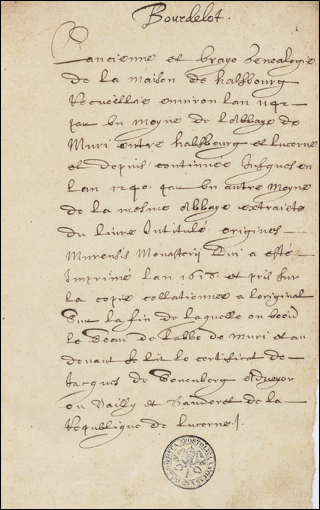 Bourdelot.
Lancienne et vraye Genealogie
de la maison de habsbourg
Recueillie environ lan 1142
par un moyne de labbaye de
Muri entre habsbourg et lucerne
et depuis continuée Jusques en
Lan 1240. par un autre moyne
de la mesme Abbaye extraicte
du livre Intitulé origines
Murensis Monasterij qui a esté
Imprimé lan 1618. et pris sur
la copie collationnee a loriginal
sur la fin de laquelle on void
le seau de labbé de Muri et au
devant se lit le certificat de
Jacques de Sonenberg
ou Bailly et Banderet de la
Republique de lucerne.